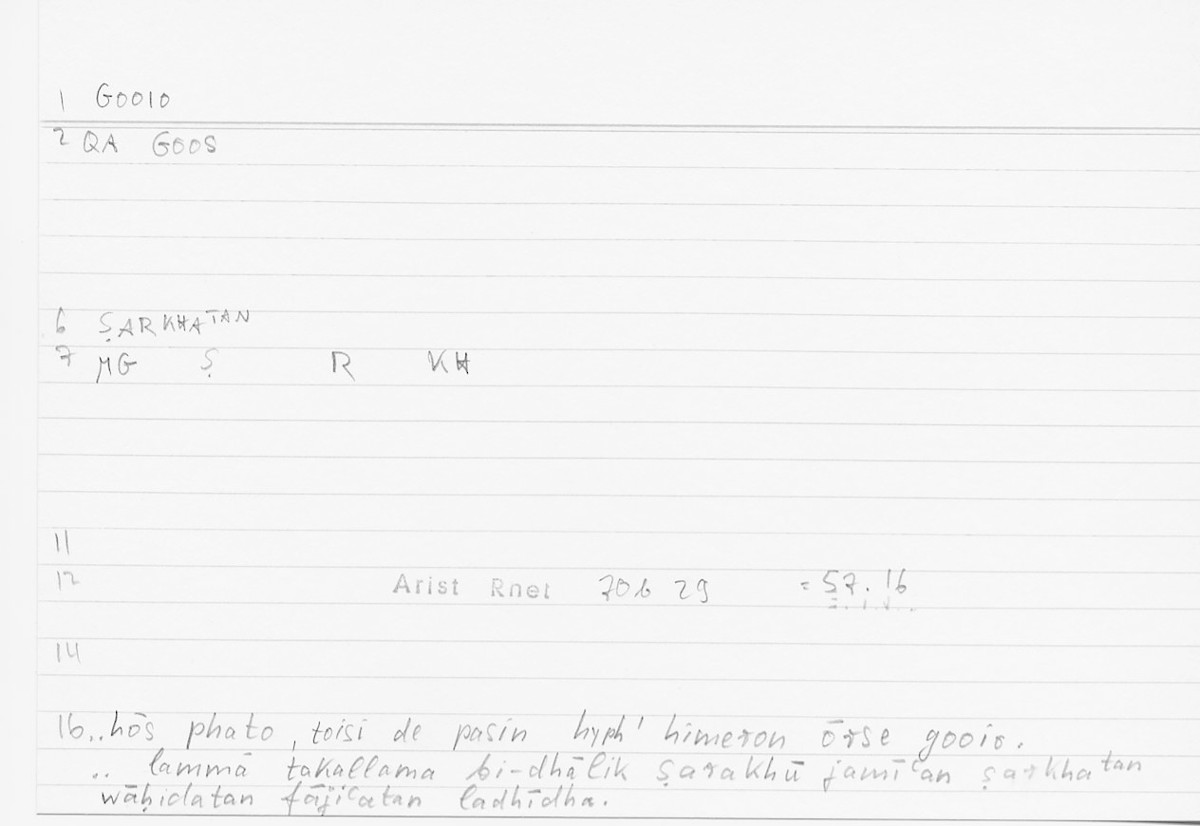 1 GOOIO
2 QA GOOS
6 ṢARKHATAN
7 MG Ṣ R KH
11
12 Arist Rhet 70b 29 = 57.16
14
16.. hōs phato, toisi de pasin hyph' himeron ōrse gooio.
.. lammā takallama bi-dhālik ṣarakhū jamīʿan ṣarkhatan
wāḥidatan fājiʿatan ladhīdha.